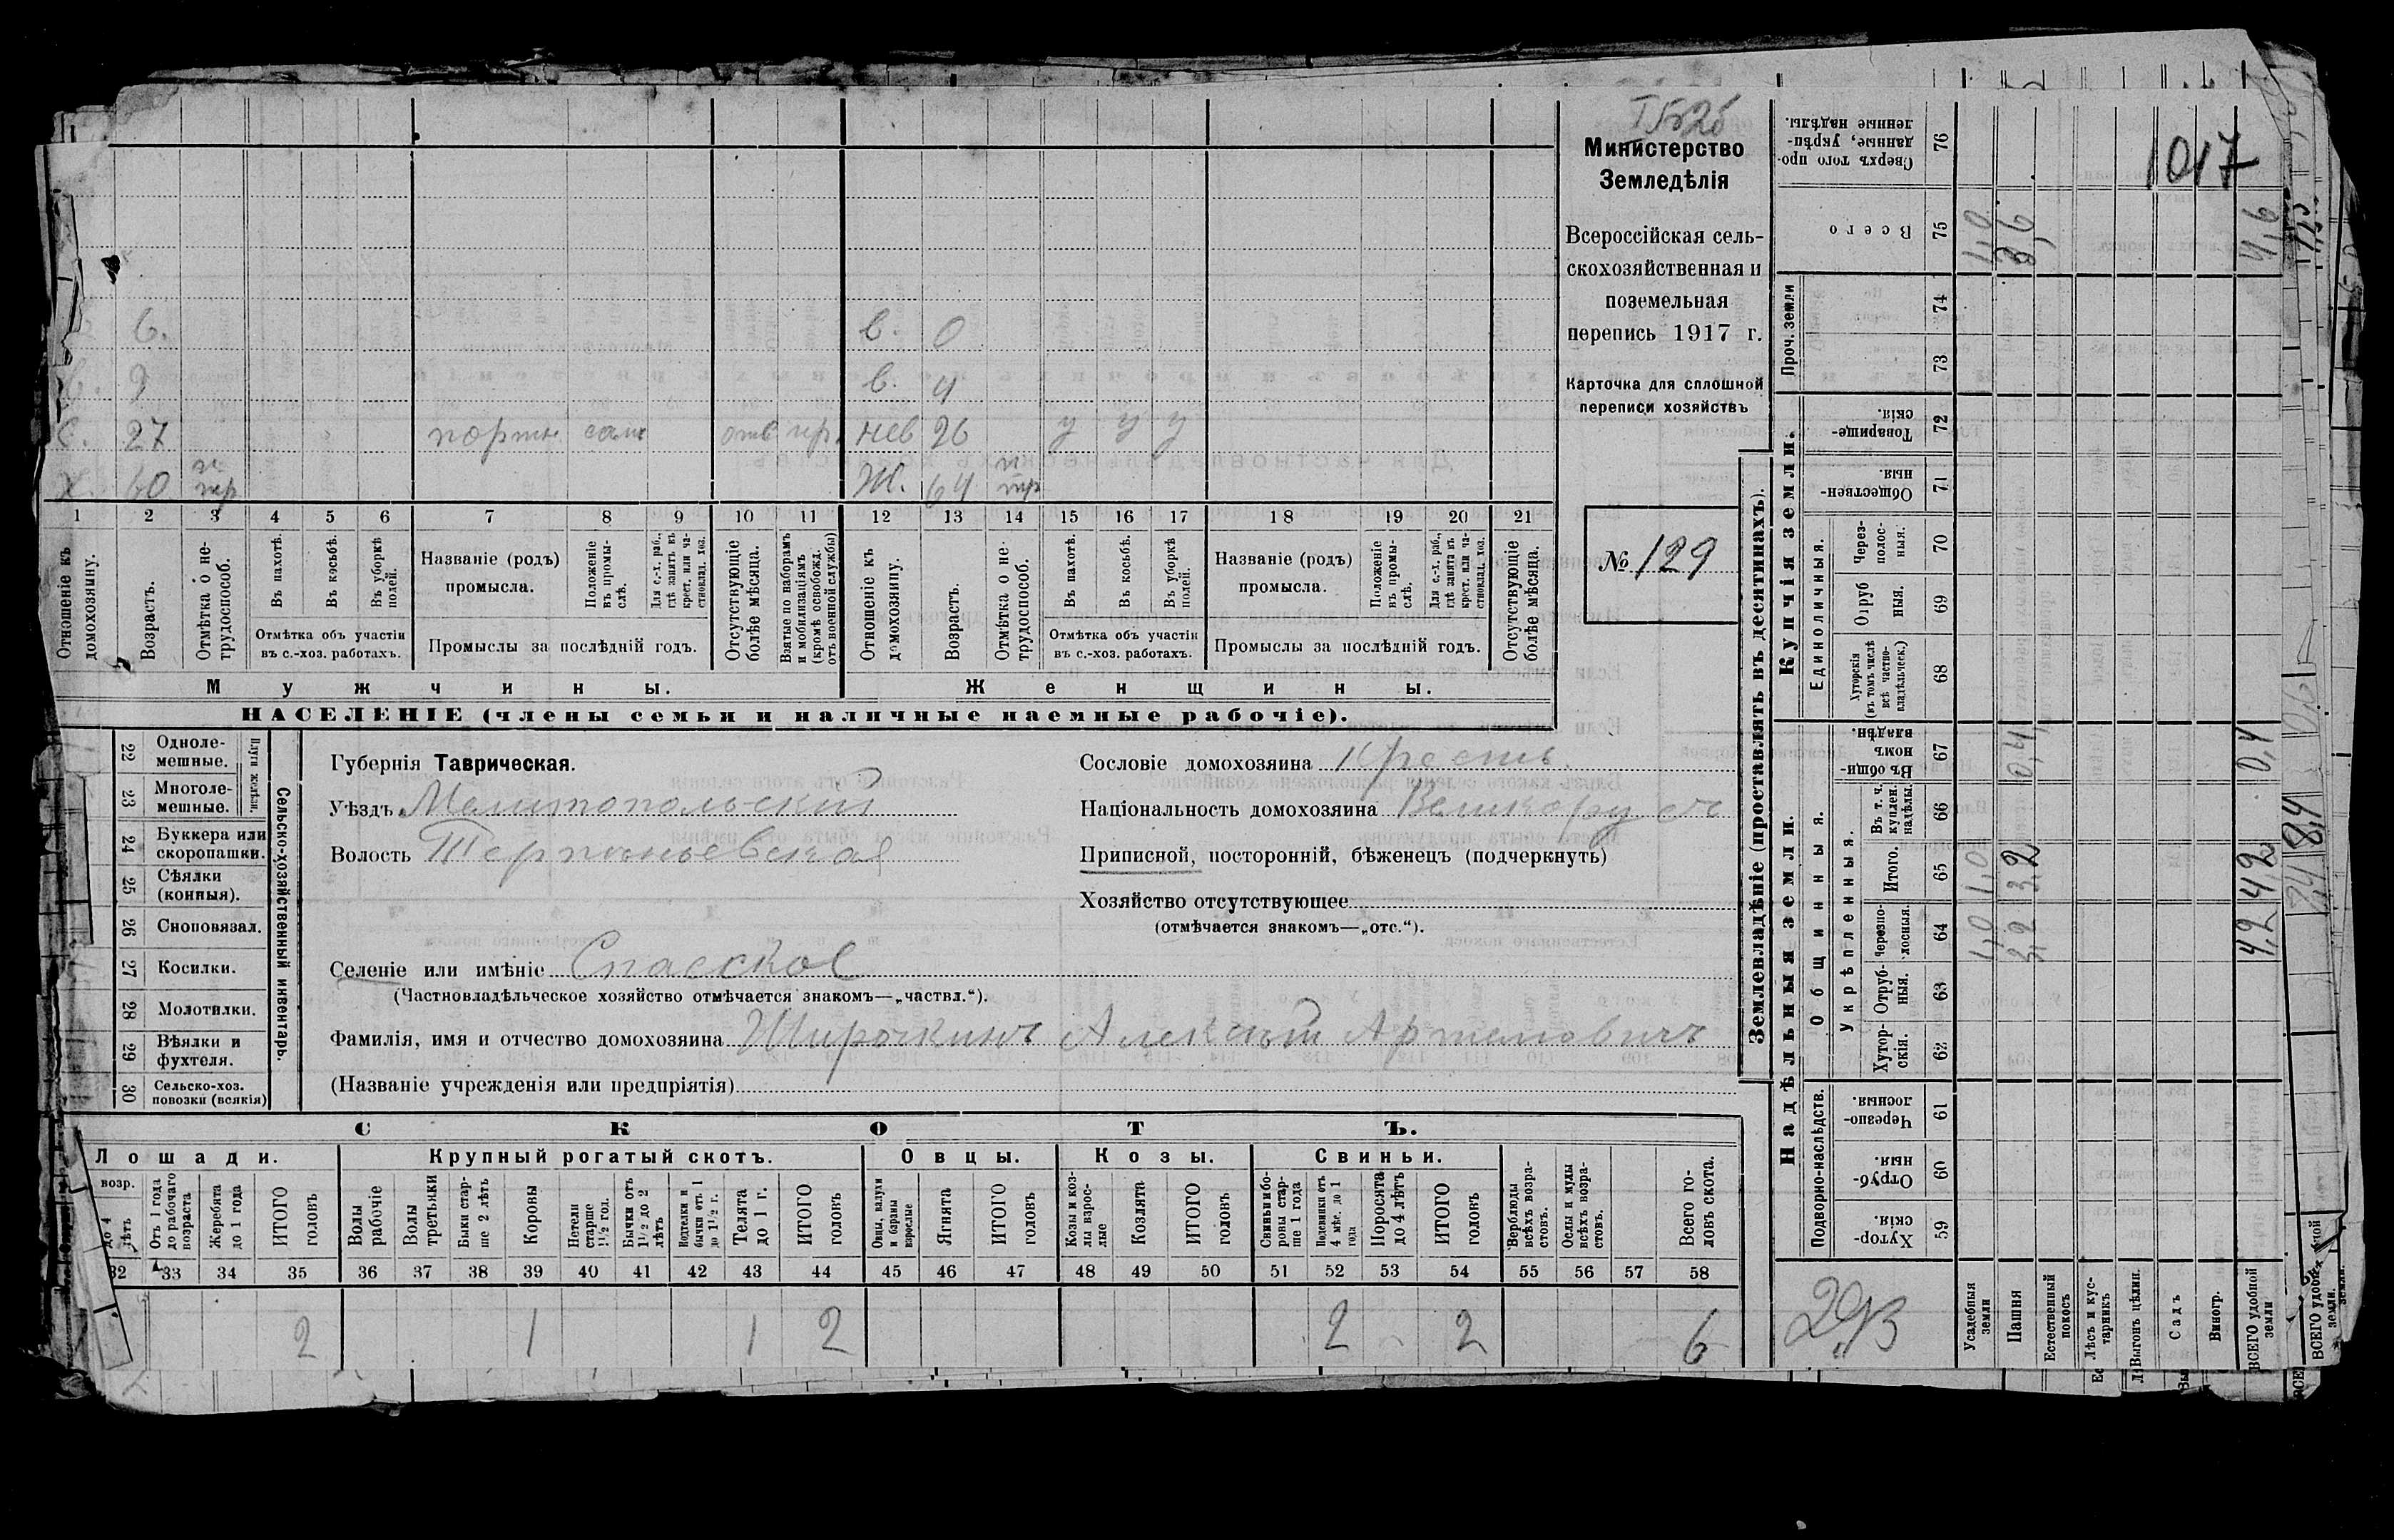 1017
Министерство
Земледѣлія
Всероссійская сель-
скохозяйственная и
поземельная
перепись 1917 г.
Карточка для сплошной
переписи хозяйствъ
№ 129
6. в. 0
9 в. 4
с. 27 портн. сам отс пр. нев 26 у у у
х. 60 н. тр Ж. 64 н. тр
1 2 3 4 5 6 7 8 9 10 11 12 13 14 15 16 17 18 19 20 21
Отношеніе къ домохозяину.
Возрастъ.
Отмѣтка о не-трудоспособ.
Въ пахотѣ.
Въ косьбѣ.
Въ уборкѣ полей.
Отмѣтка объ участіи въ с.-хоз. работахъ.
Названіе (родъ) промысла.
Положеніе въ промы-слѣ.
Для с.-х. раб., гдѣ занятъ въ крест. или ча-стновлад. хоз.
Промыслы за послѣдній годъ.
Отсутствующіе болѣе мѣсяца.
Взятые по наборамъ и мобилизаціямъ (кромѣ освобожд. отъ военной службы)
Отношеніе къ домохозяину.
Возрастъ.
Отмѣтка о не-трудоспособ.
Въ пахотѣ.
Въ косьбѣ.
Въ уборкѣ полей.
Отмѣтка объ участіи въ с.-хоз. работахъ.
Названіе (родъ) промысла.
Положеніе въ промы-слѣ.
Для с.-х. раб., гдѣ занята въ крест. или ча-стновлад. хоз.
Промыслы за послѣдній годъ.
Отсутствующіе болѣе мѣсяца.
Мужчины.
Женщины.
НАСЕЛЕНІЕ (члены семьи и наличные наемные рабочіе).
Сельско-хозяйственный инвентарь.
22 Одноле-мешные.
23 Многоле-мешные.
24 Буккера или скоропашки.
25 Сѣялки (конныя).
26 Сноповязал.
27 Косилки.
28 Молотилки.
29 Вѣялки и фухтеля.
30 Сельско-хоз. повозки (всякія)
Губернія Таврическая.
Уѣздъ Мелитопольскій
Волость Терпиньевская
Селеніе или имѣніе Спасское
(Частновладѣльческое хозяйство отмѣчается знакомъ—„частвл.“).
Фамилія, имя и отчество домохозяина Широчкинъ Алексѣй Артемовичъ
(Названіе учрежденія или предпріятія)
Сословіе домохозяина Крестъ.
Національность домохозяина Великорусъ
Приписной, посторонній, бѣженецъ (подчеркнуть)
Хозяйство отсутствующее
(отмѣчается знакомъ—„отс.“).
СКОТЪ.
Лошади. Крупный рогатый скотъ. Овцы. Козы. Свиньи.
возр.
до 4 лѣтъ
Отъ 1 года до рабочаго возраста
Жеребята до 1 года
ИТОГО головъ
Волы рабочіе
Волы третьяки
Быки стар-ше 2 лѣтъ
Коровы
Нетели старше 1½ год.
Бычки отъ 1½ до 2 лѣтъ
Подтелки и бычки отъ 1 до 1½ г.
Телята до 1 г.
ИТОГО головъ
Овцы, валухи и бараны взрослые
Ягнята
ИТОГО головъ
Козы и коз-лы взрос-лые
Козлята
ИТОГО головъ
Свиньи и бо-ровы стар-ше 1 года
Подсвинки отъ 4 мѣс. до 1 года
Поросята до 4 лѣтъ
ИТОГО головъ
Верблюды всѣхъ возра-стовъ.
Ослы и мулы всѣхъ возра-стовъ.
Всего го-ловъ скота.
32 33 34 35 36 37 38 39 40 41 42 43 44 45 46 47 48 49 50 51 52 53 54 55 56 57 58
2 1 1 2 2 2 6
Землевладѣніе (проставлять въ десятинахъ).
Надѣльныя земли. Купчія земли. Проч. земли
Подворно-наслѣдств.
Общинныя.
Укрѣпленныя.
Единоличныя.
Сверхъ того про-данные, укрѣп-ленные надѣлы. 76
Всего 75 1,0 3,6 4,6
74
73
Товарище-скія. 72
Обществен-ныя. 71
Через-полос-ныя. 70
Отруб ныя. 69
Хуторскія (въ томъ числѣ всѣ частно-владѣльческ.) 68
Въ общин-номъ владѣн. 67 0,4 0,4
Въ т. ч. куплен. надѣлы. 66
Итого. 65 1,0 3,2 4,2
Черезпо-лосныя. 64 1,0 3,2 4,2
Отруб-ныя. 63
Хутор-скія. 62
Черезпо-лосныя. 61
Отруб-ныя. 60
Хутор-скія. 59
Усадебныя земли
Пашня
Естественный покосъ
Лѣсъ и кус-тарникъ
Выгонъ цѣлин.
Садъ
Виногр.
ВСЕГО удобной земли
ВСЕГО удобной земли.